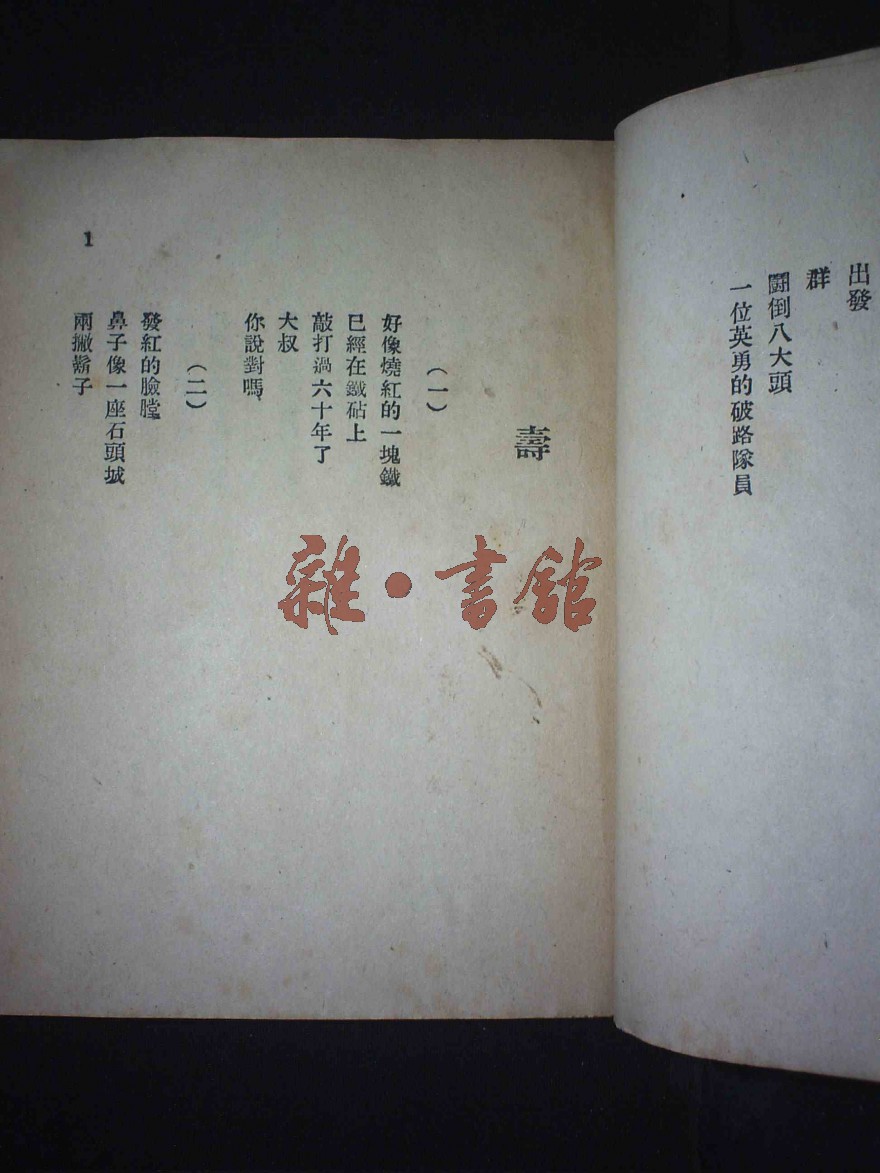 出發
群
鬭倒八大頭
一位英勇的破路隊員
壽
（一）
好像燒紅的一塊鐵
已經在鐵砧上
敲打過六十年了
大叔
你說對嗎
（二）
發紅的臉膛
鼻子像一座石頭城
兩撇鬍子
1
雜·書舘